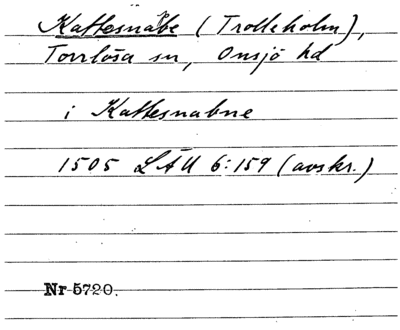 Kattesnabe (Trolleholm),
Torrlösa sn, Onsjö hd
i Kattesnabne
1505 LÄU 6:159 (avskr.)
Nr 5720.